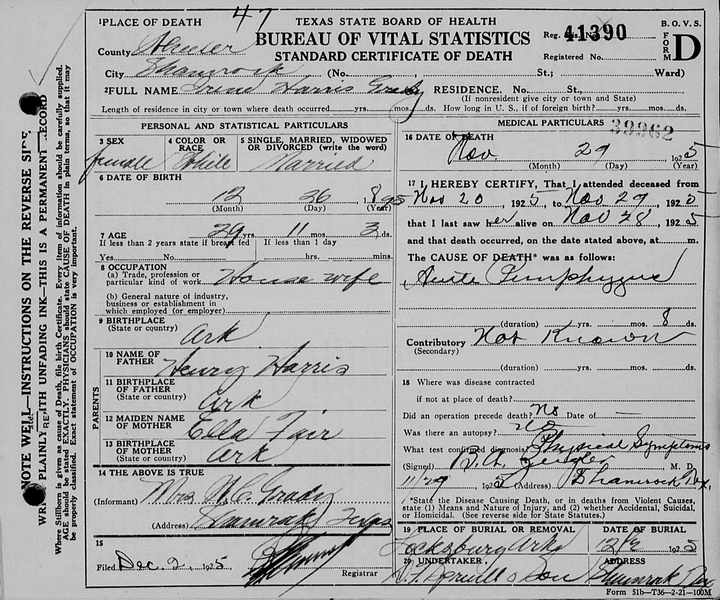 47
TEXAS STATE BOARD OF HEALTH
BUREAU OF VITAL STATISTICS
STANDARD CERTIFICATE OF DEATH
B. O. V. S.
FORM D
Reg. 41390
Registered No.
¹PLACE OF DEATH
County
City Shamrock (No. St.; Ward)
²FULL NAME Irene Harris Grady RESIDENCE. No. St.,
(If nonresident give city or town and State)
Length of residence in city or town where death occurred yrs. mos. ds. How long in U. S., if of foreign birth? yrs. mos. ds.
PERSONAL AND STATISTICAL PARTICULARS
3 SEX
female
4 COLOR OR RACE
White
5 SINGLE, MARRIED, WIDOWED OR DIVORCED (write the word)
Married
6 DATE OF BIRTH
12 26 1895
(Month) (Day) (Year)
7 AGE
29 11 3 ds.
If less than 2 years state if breast fed If less than 1 day
Yes No hrs. mins.
8 OCCUPATION
(a) Trade, profession or particular kind of work House wife
(b) General nature of industry, business or establishment in which employed (or employer)
9 BIRTHPLACE
(State or country) Ark
PARENTS
10 NAME OF FATHER Henry Harris
11 BIRTHPLACE OF FATHER
(State or country) Ark
12 MAIDEN NAME OF MOTHER Ella Fair
13 BIRTHPLACE OF MOTHER
(State or country) Ark
14 THE ABOVE IS TRUE
(Informant) Mrs Grady
(Address) Shamrock Texas
15
Filed Dec. 2, 1925
Registrar
MEDICAL PARTICULARS
39962
16 DATE OF DEATH
Nov 29 1925
(Month) (Day) (Year)
17 I HEREBY CERTIFY, That I attended deceased from
Nov 20, 1925, to Nov 29, 1925
that I last saw her alive on Nov 28, 1925
and that death occurred, on the date stated above, at m.
The CAUSE OF DEATH* was as follows:
Acute Pemphygus
(duration) yrs. mos. 8 ds.
Contributory Not Known
(Secondary)
(duration) yrs. mos. ds.
18 Where was disease contracted
if not at place of death?
Did an operation precede death? No Date of —
Was there an autopsy? no
What test confirmed diagnosis? Physical Symptoms
(Signed) M. D.
11/29 (Address) Shamrock Tex.
*State the Disease Causing Death, or in deaths from Violent Causes,
state (1) Means and Nature of Injury, and (2) whether Accidental, Suicidal,
or Homicidal. (See reverse side for State Statutes.)
19 PLACE OF BURIAL OR REMOVAL
Locksburg Ark
DATE OF BURIAL
1925
20 UNDERTAKER
& Son
ADDRESS
Shamrock Tex
Form 51b—T36—2-21—100M
NOTE WELL—INSTRUCTIONS ON THE REVERSE SIDE
WRITE PLAINLY WITH UNFADING INK—THIS IS A PERMANENT RECORD
Where Stillborn is given as cause of Death, file birth Certificate. Every item of information should be carefully supplied.
AGE should be stated EXACTLY. PHYSICIANS should state CAUSE OF DEATH in plain terms, so that it may
be properly classified. Exact statement of OCCUPATION is very important.